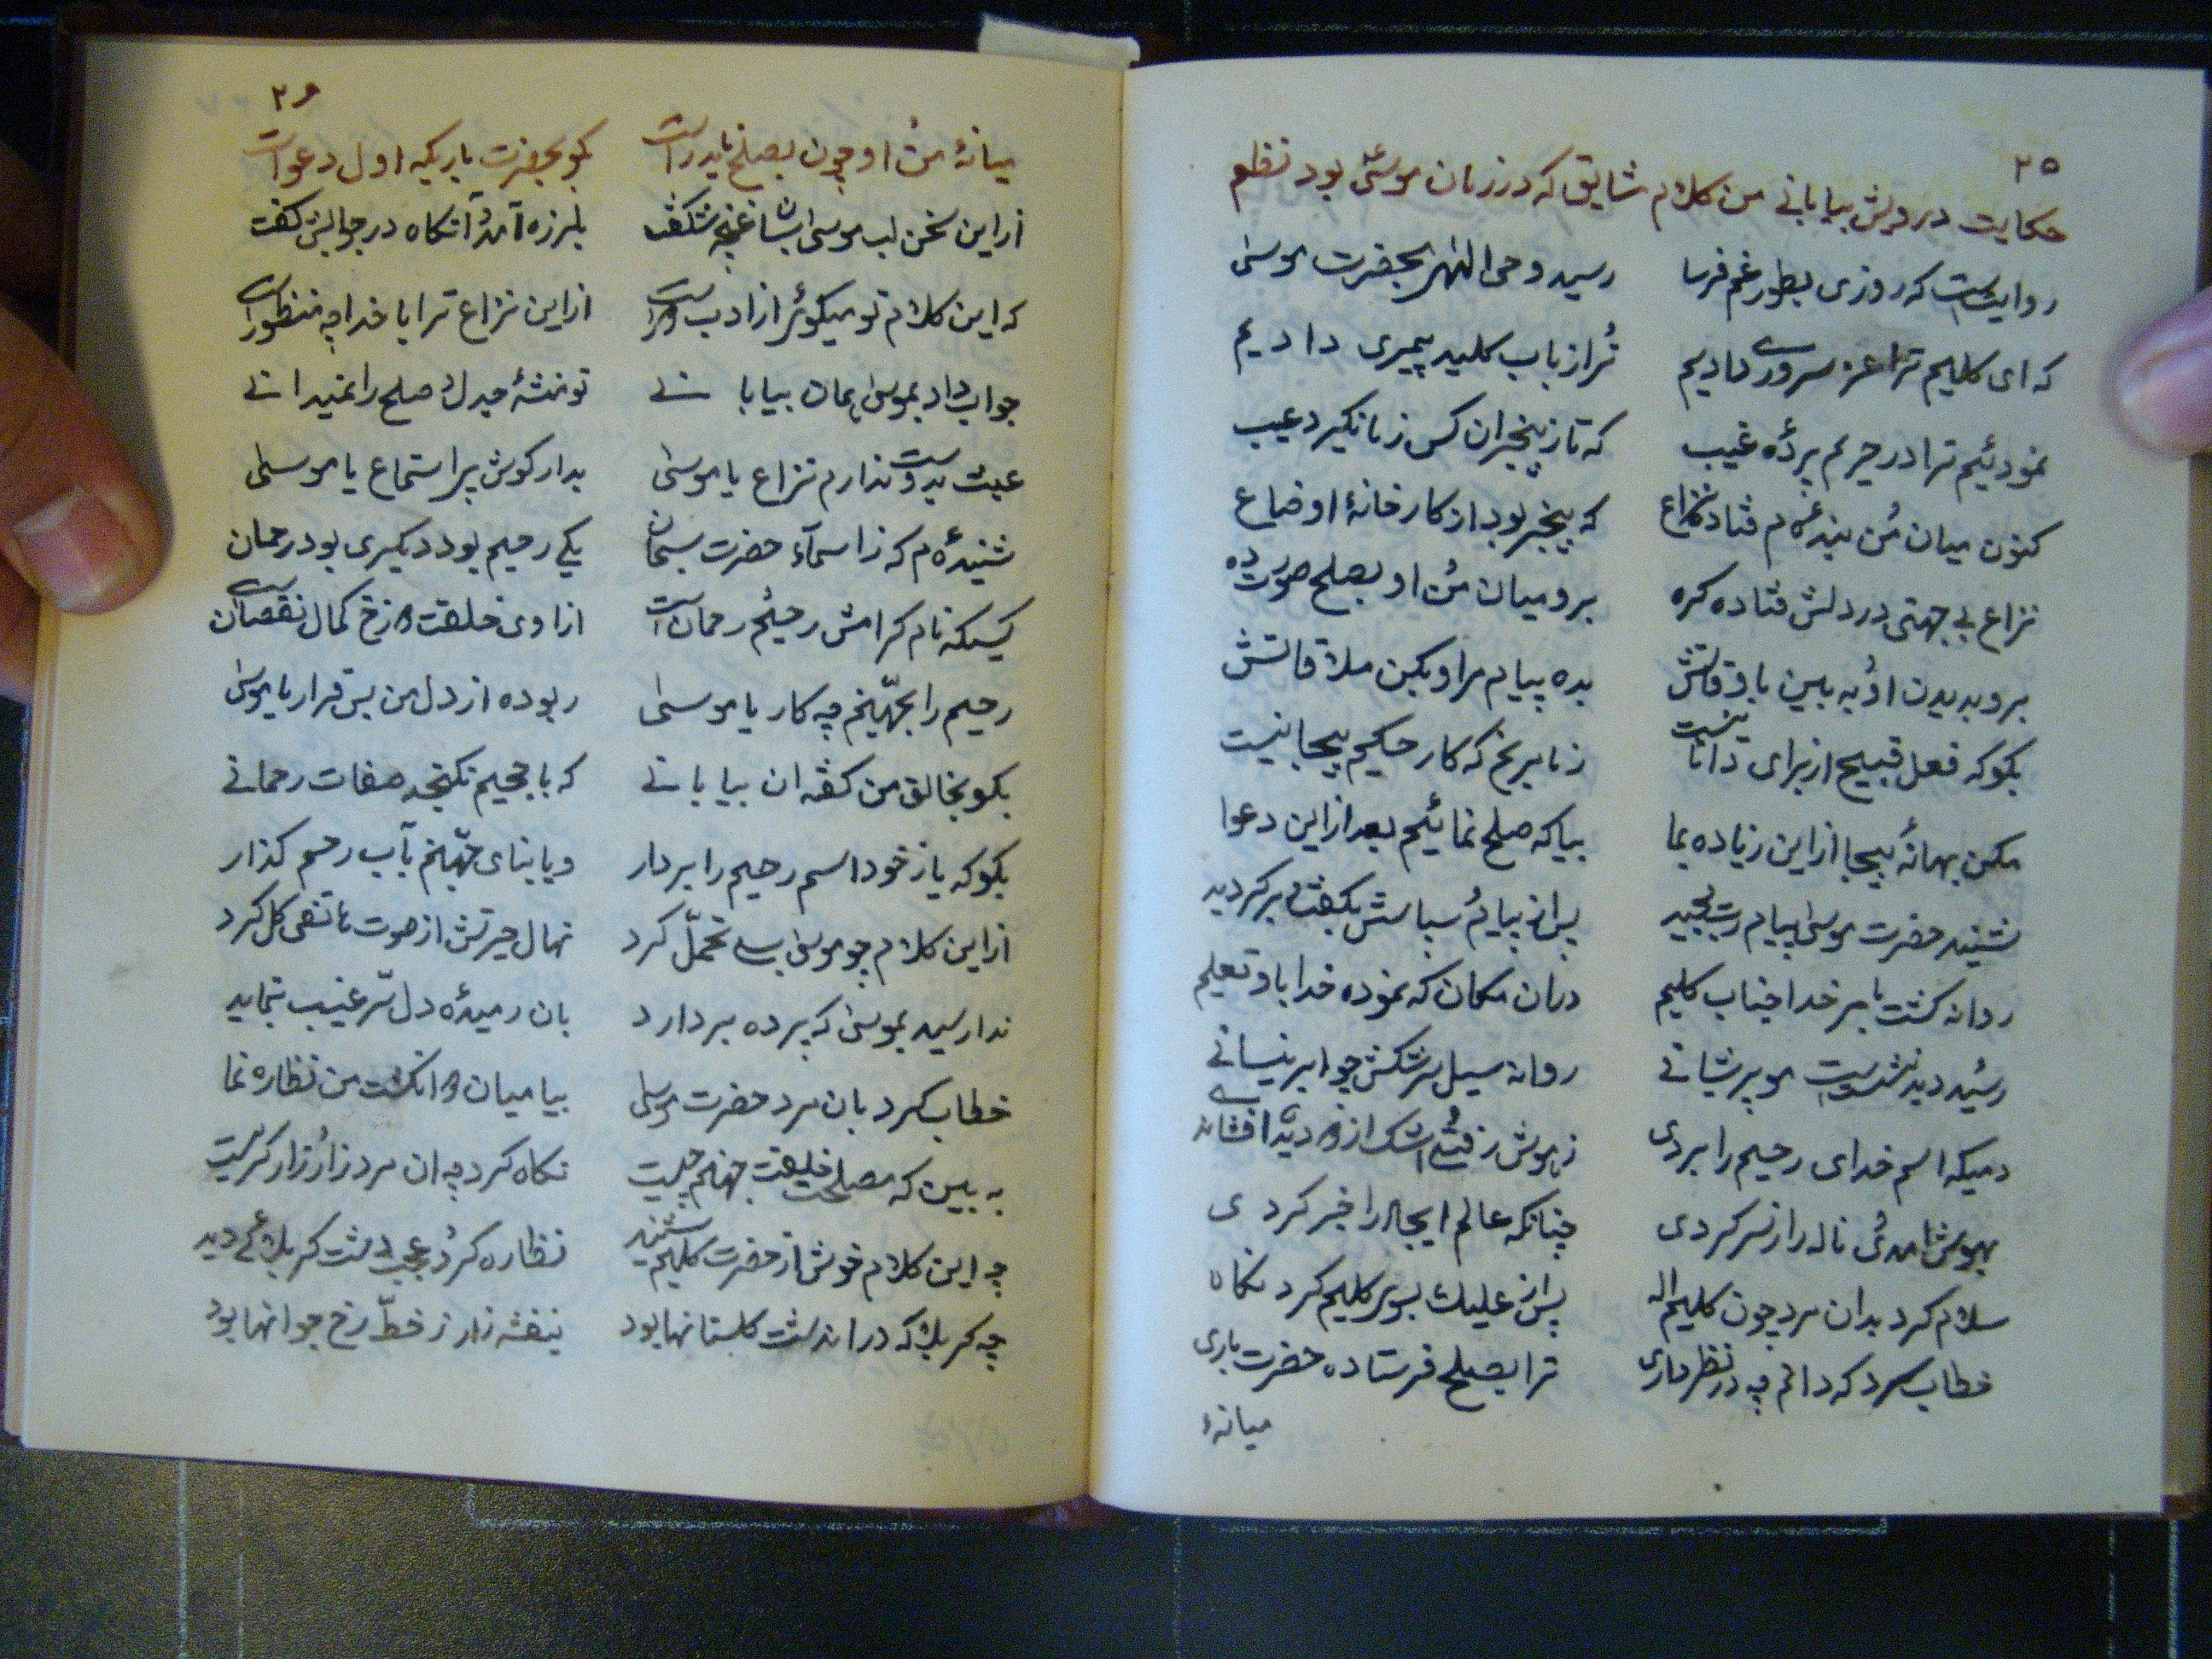 ۲۵
حکایت درویش بیابانی من کلام شایق که در زمان موسیٰ بود نظم
روایتست که روزی بطور غم فرسا رسید وحی الٰهی بحضرت موسیٰ
که ای کلیم ترا عز سروری دادیم تُرا ز باب کلید پیمبری دادیم
نمودئیم ترا در حریم پردهٔ غیب که تا ز بیخبران کس زما نگیرد عیب
کنون میان مُن بندهٔ‌ام فتاد نزاع که بیخبر بود از کارخانهٔ اوضاع
نزاع بی جهتی در دلش فتاده کره برو میان مُن او بصلح صورت ده
برو بدیدن او به بین باوقاتش بده پیام مرا و بکن ملاقاتش
بکو که فعل قبیح از برای دانا نیست ز ما مرنج که کار حکیم بیجا نیست
مکن بهانهٔ بیجا از این زیاده بما بیا که صلح نمائیم بعد از این دعوا
شنید حضرت موسیٰ پیام رب مجید پس از پیام سپاسش بکفت و برکردید
روانه کشت بامر خدا جناب کلیم در ان مکان که نموده خدا باو تعلیم
رسید دید نشستست مو پریشانی روانه سیل سرشکش چو ابر نیسانی
دمیکه اسم خدای رحیم را بردی ز هوش رفتی اشک از دو دیده افشاندی
بهوش آمدی ناله را ز سر کردی چنانکه عالم ایجاد را خبر کردی
سلام کرد بدان مرد چون کلیم اله پس از علیک بسوی کلیم کرد نکاه
خطاب کرد که دانم چه در نظر داری ترا بصلح فرستاده حضرت باری
میانهٔ
۲۶
میانهٔ من او چون بصلح ناید راست بکو بحضرت باریکه اول دعواست
از این سخن لب موسیٰ بسان غنچه شکفت بلرزه آمد آنکاه در جوابش کفت
که این کلام تو میکوئی از ادب دور است از این نزاع ترا با خدا چه منظور است
جواب داد بموسیٰ همان بیابانی تو نشهٔ جدل صلح را نمیدانی
عبث بدوست ندارم نزاع یا موسیٰ بدار کوش پر استماع یا موسیٰ
شنیدهٔ‌ام که ز اسمآء حضرت سبحان یکی رحیم بود دیکری بود رحمان
کسیکه نام کرامش رحیم رحمان است از اوی خلقت دوزخ کمال نقصان است
رحیم را بجهّنم چه کار یا موسیٰ ربوده از دل من این قرار یا موسیٰ
بکو بخالق من کفته ان بیابانی که با جحیم نکنجد صفات رحمانی
بکو که یا ز خود اسم رحیم را بردار و یا بنای جهّنم بآب رحم کذار
از این کلام چو موسیٰ بسی تحمّل کرد نهال حیرتش از صوت هاتفی کل کرد
ندا رسید بموسیٰ که پرده بردارد بان رمیدهٔ دل سّر غیب بنماید
خطاب کرد بان مرد حضرت موسیٰ بیا میان دو انکشت من نظاره نما
به بین که مصلحت خلقت جهنم چیست نکاه کرد چه ان مرد زار زار کریست
چه این کلام خوش از حضرت کلیم شنید نظاره کرد عجب دشت کربلائی دید
چه کربلا که در ان دشت کلستانها بود بنفشه زار ز خطّ رخ جوانها بود